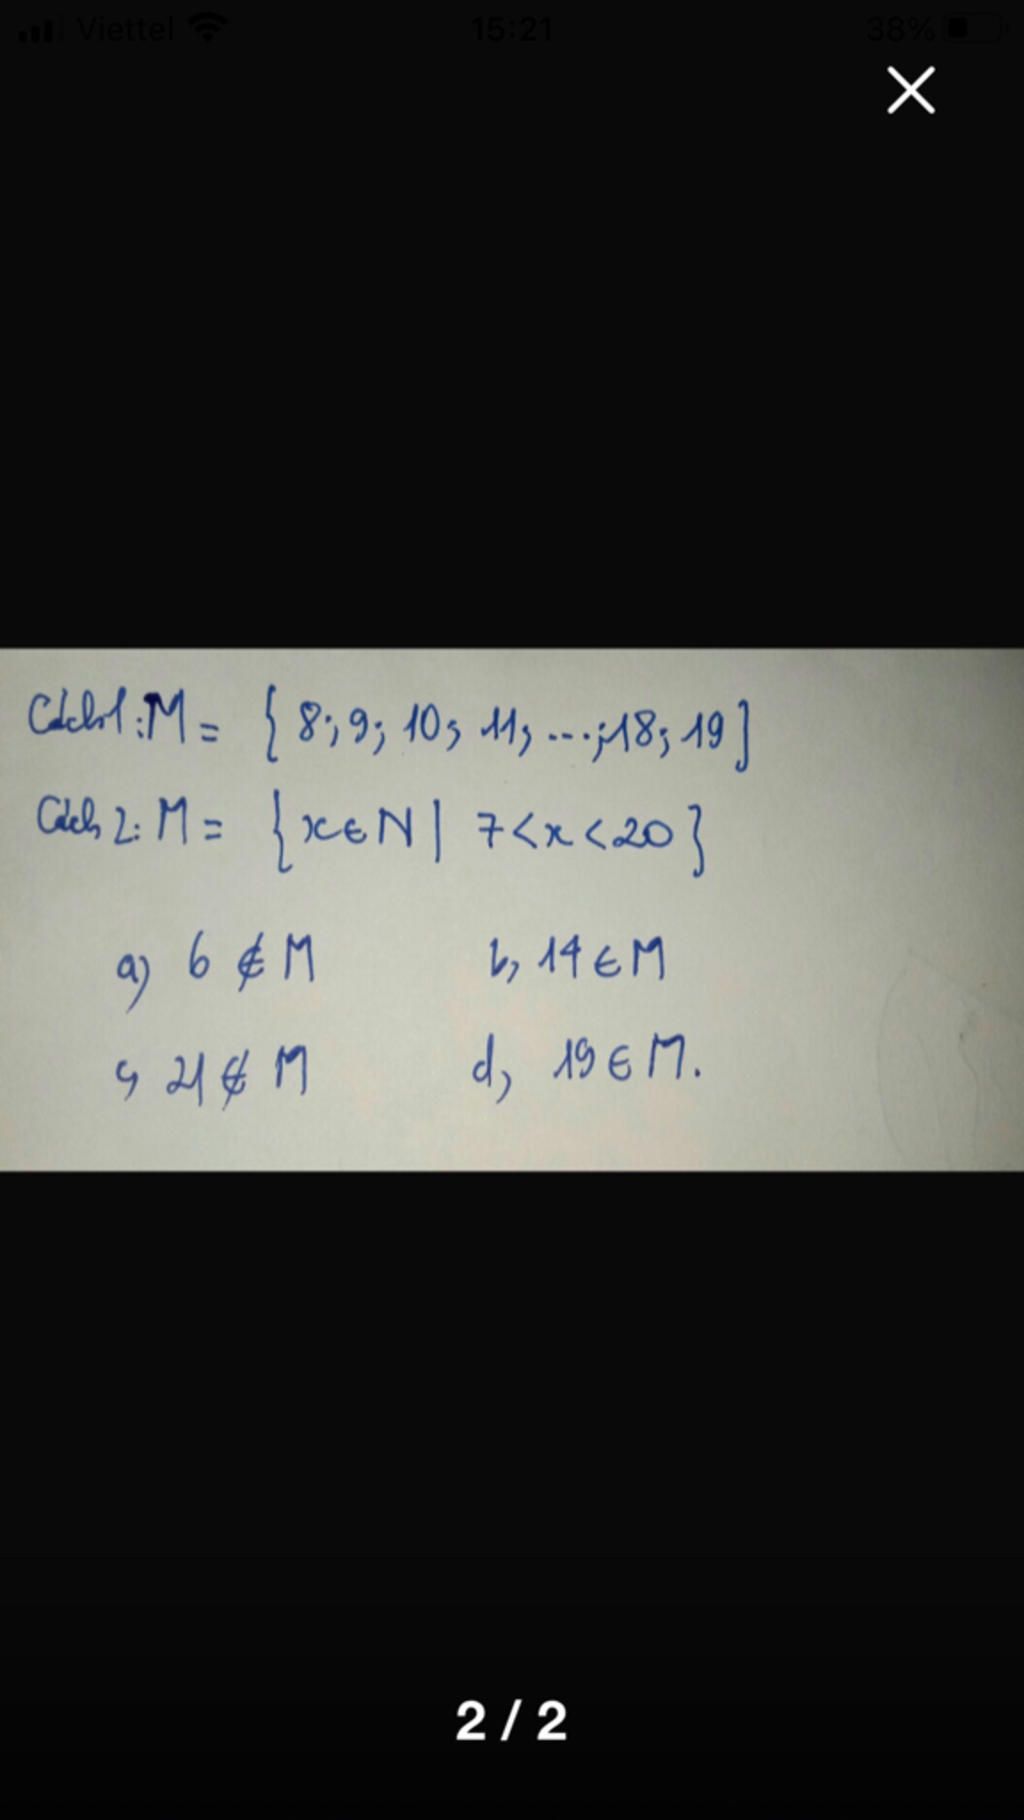 Viettel 15:21 38%
Cách1: M = { 8; 9; 10; 11; ...; 18; 19 }
Cách 2: M = { x ∈ N | 7 < x < 20 }
a) 6 ∉ M b, 14 ∈ M
c, 21 ∉ M d, 19 ∈ M.
2 / 2